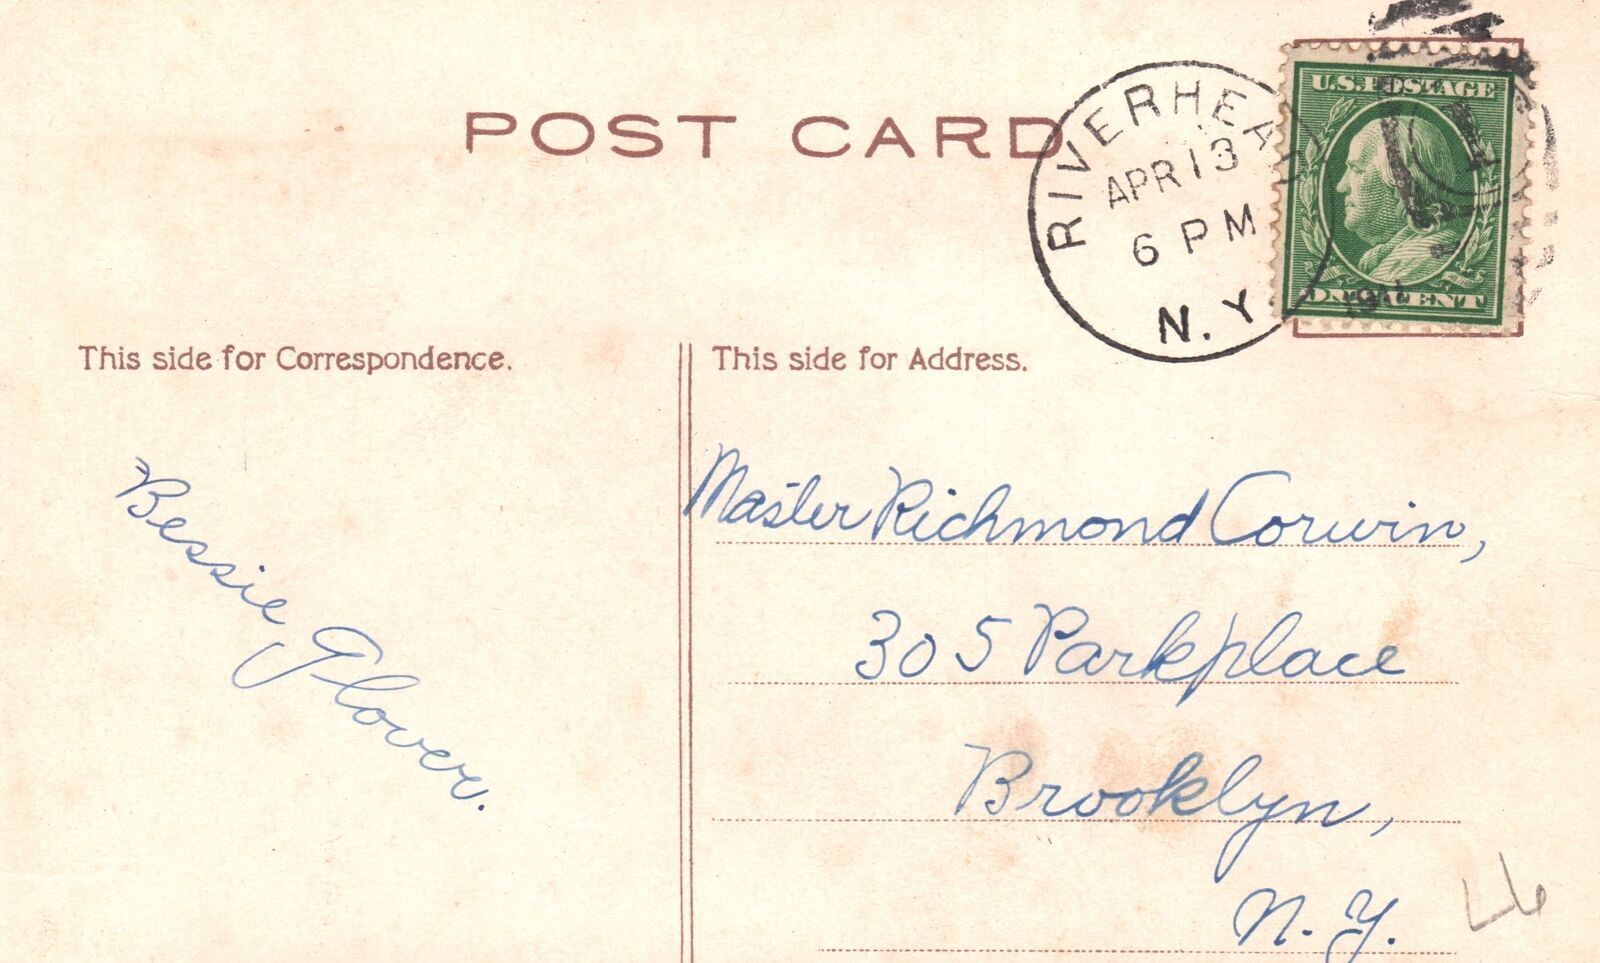 POST CARD
RIVERHEAD
APR 13
6 PM
N.Y.
U.S. POSTAGE
ONE CENT
This side for Correspondence.
This side for Address.
Bessie Glover.
Master Richmond Corwin,
305 Parkplace
Brooklyn,
N.Y.